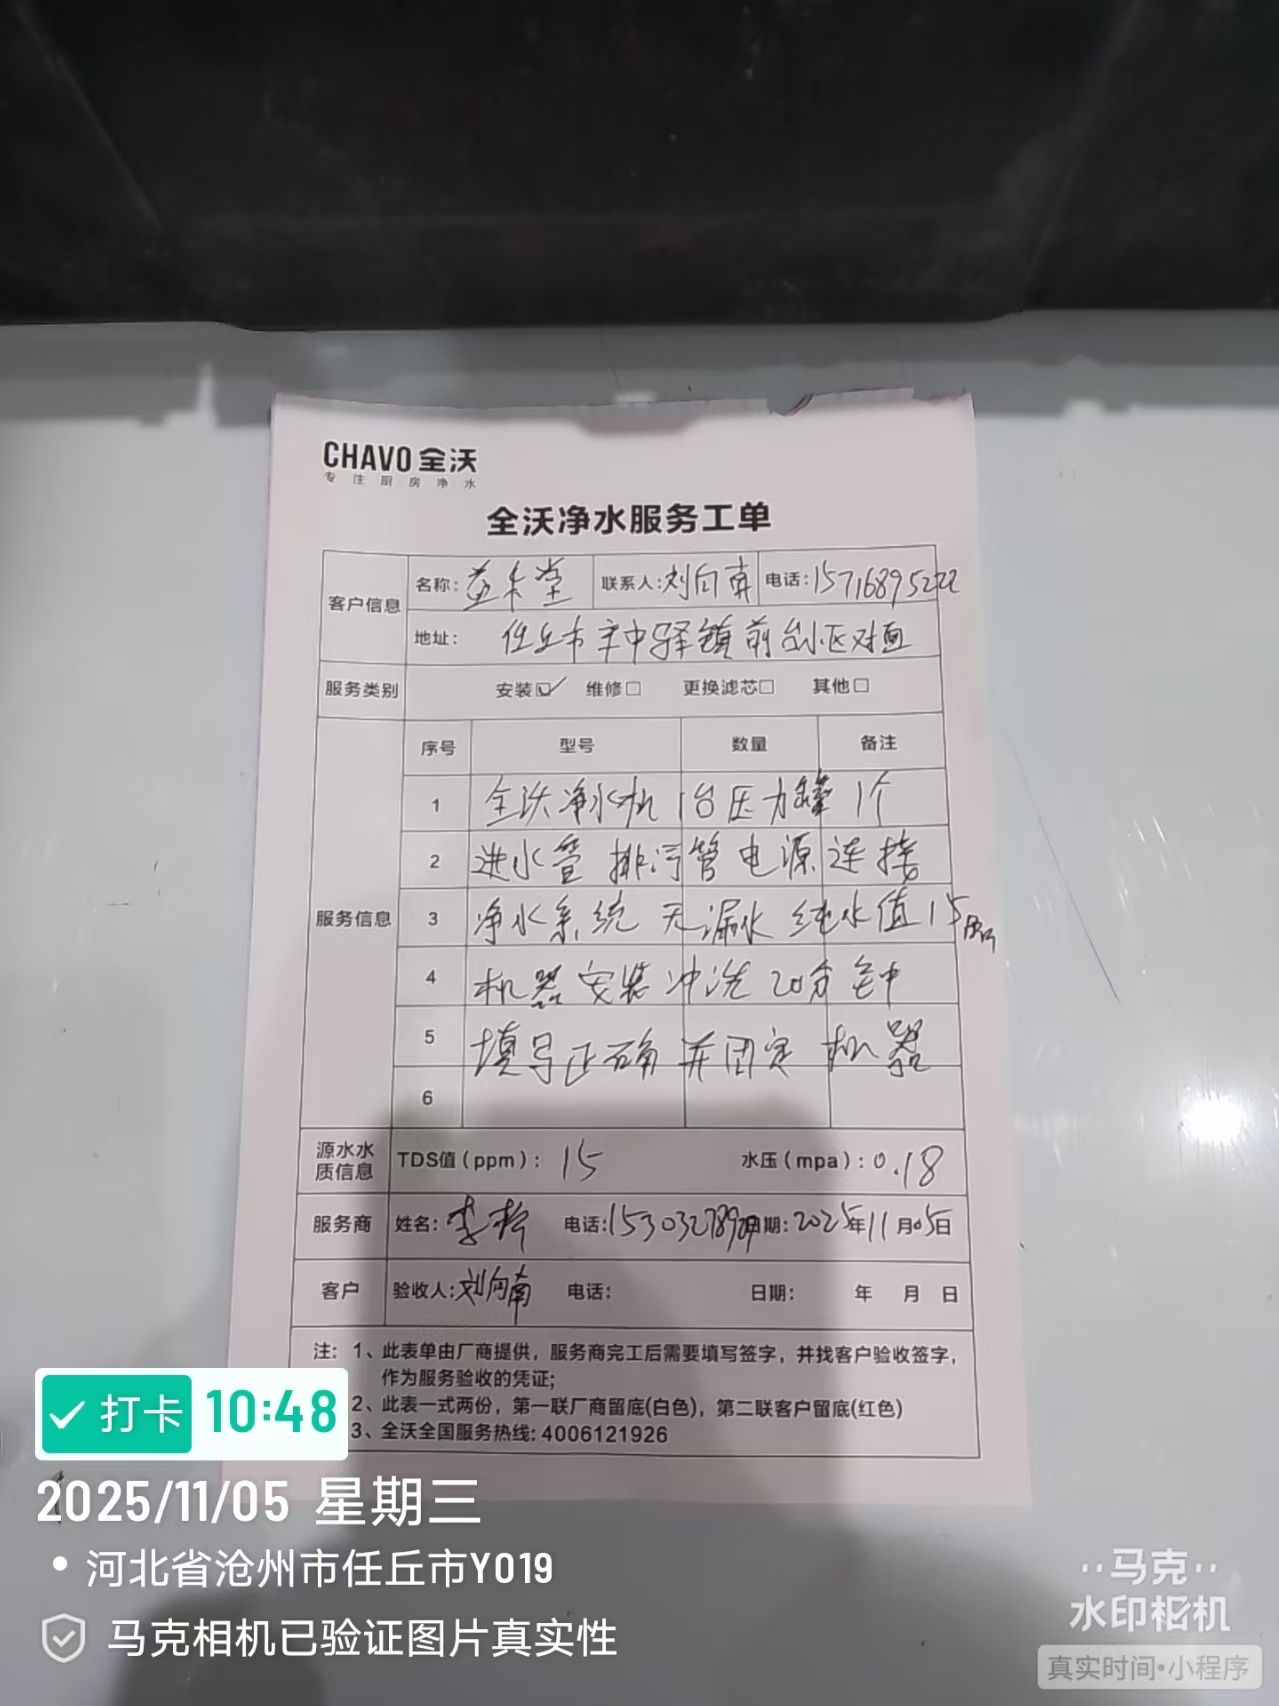 CHAVO 全沃
专注厨房净水
全沃净水服务工单
客户信息 名称：益卡堂 联系人：刘向南 电话：15716895222
地址： 任丘市辛中驿镇前台小区对面
服务类别 安装☑ 维修□ 更换滤芯□ 其他□
服务信息 序号 型号 数量 备注
1 全沃净水机 1台压力罐 1个
2 进水管 排污管 电源连接
3 净水系统 无漏水 纯水值15
4 机器安装冲洗20分钟
5 填写正确 并固定 机器
6
源水水质信息 TDS值（ppm）：15 水压（mpa）：0.18
服务商 姓名：李 电话： 日期：2025年11月05日
客户 验收人：刘向南 电话： 日期： 年 月 日
注：1、此表单由厂商提供，服务商完工后需要填写签字，并找客户验收签字，
作为服务验收的凭证；
2、此表一式两份，第一联厂商留底(白色)，第二联客户留底(红色)
3、全沃全国服务热线：4006121926
打卡 10:48
2025/11/05 星期三
河北省沧州市任丘市Y019
马克相机已验证图片真实性
马克
水印相机
真实时间•小程序